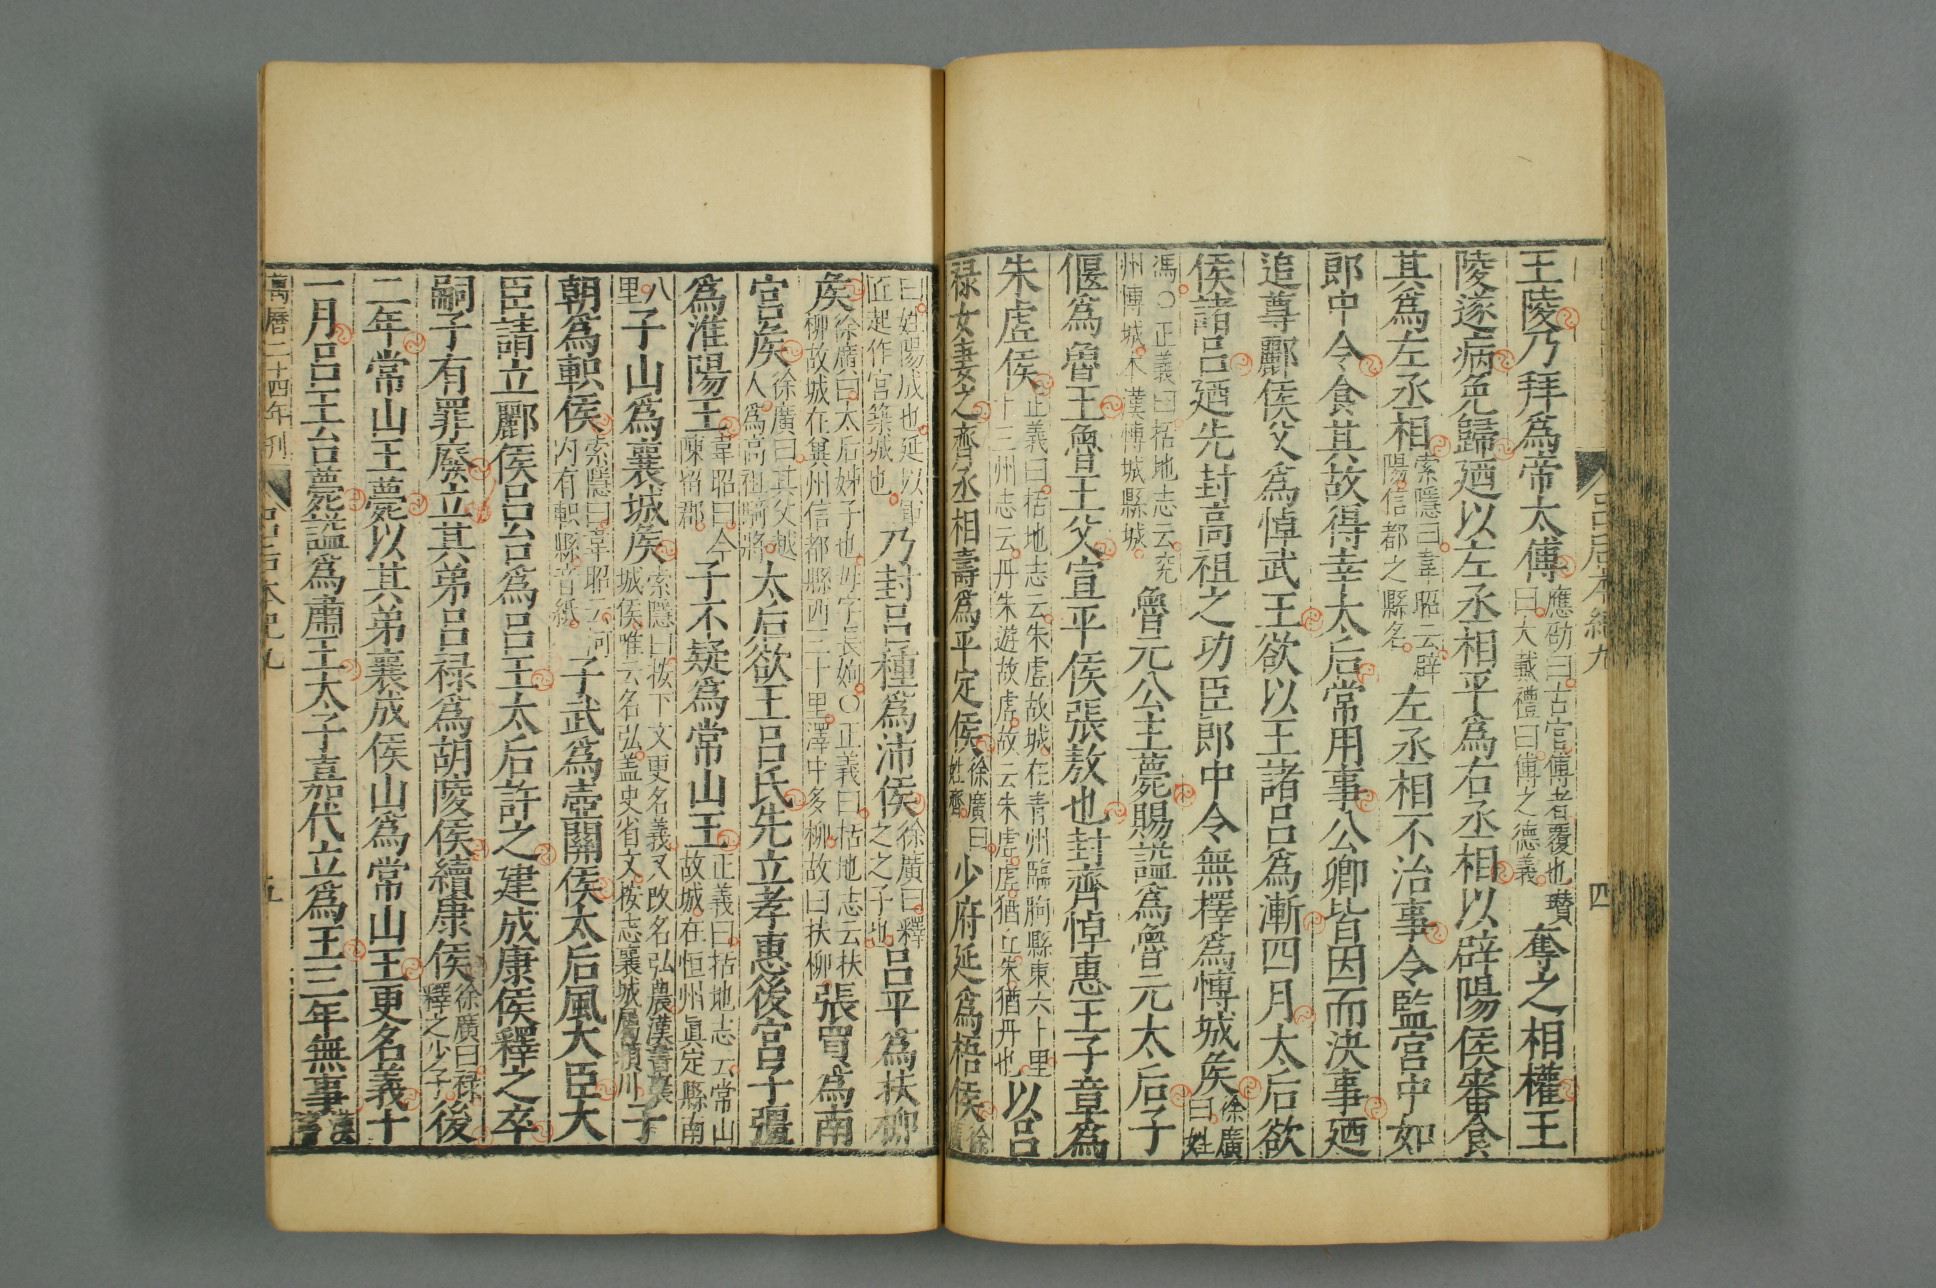 王陵乃拜爲帝太傅應劭曰古官傅者覆也瓚曰大戴禮曰傅之德義奪之相權王
陵遂病免歸廼以左丞相平爲右丞相以辟陽侯審食
其爲左丞相索隱曰韋昭云辟陽信都之縣名左丞相不治事令監宮中如
郎中令食其故得幸太后常用事公卿皆因而決事廼
追尊酈侯父爲悼武王欲以王諸呂爲漸四月太后欲
侯諸呂廼先封高祖之功臣郎中令無擇爲博城侯徐廣曰姓
馮○正義曰括地志云兖州博城本漢博城縣城魯元公主薨賜諡爲魯元太后子
偃爲魯王魯王父宣平侯張敖也封齊悼惠王子章爲
朱虛侯正義曰括地志云朱虛故城在青州臨朐縣東六十里十三州志云丹朱遊故虛故云朱虛虛猶丘朱猶丹也以呂
祿女妻之齊丞相壽爲平定侯徐廣曰姓齊少府延爲梧侯徐廣
曰姓陽成也延以軍匠起作宮築城也乃封呂種爲沛侯徐廣曰釋之之子也呂平爲扶柳
侯徐廣曰太后姊子也母字長姁○正義曰括地志云扶柳故城在冀州信都縣西三十里澤中多柳故曰扶柳張買爲南
宮侯徐廣曰其父越人爲高祖騎將太后欲王呂氏先立孝惠後宮子彊
爲淮陽王韋昭曰今陳留郡子不疑爲常山王正義曰括地志云常山故城在恒州眞定縣南
八里子山爲襄城侯索隱曰按下文更名義又改名弘農漢書襄城侯唯云名弘蓋史省文按志襄城屬潁川子
朝爲軹侯索隱曰韋昭云河內有軹縣音紙子武爲壺關侯太后風大臣大
臣請立酈侯呂台爲呂王太后許之建成康侯釋之卒
嗣子有罪廢立其弟呂祿爲胡陵侯續康侯徐廣曰祿釋之少子後
二年常山王薨以其弟襄成侯山爲常山王更名義十
一月呂王台薨諡爲肅王太子嘉代立爲王三年無事
呂后本紀九
四
萬曆二十四年刊
呂后本紀九
五